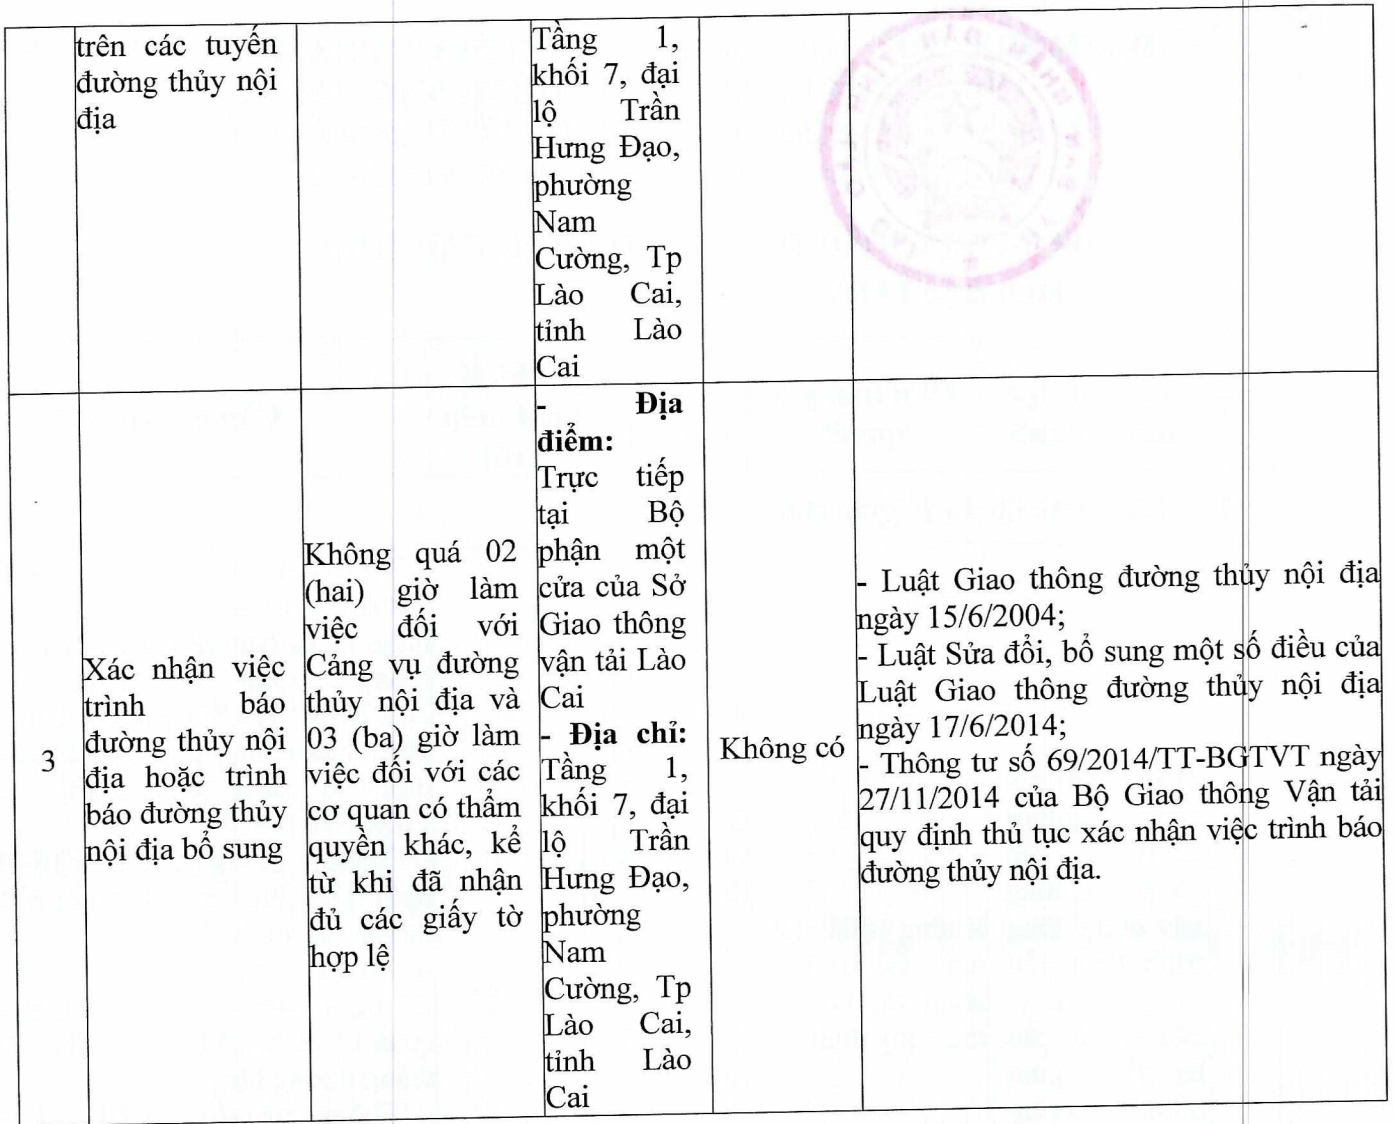 trên các tuyến
đường thủy nội
địa
Tầng 1,
khối 7, đại
lộ Trần
Hưng Đạo,
phường
Nam
Cường, Tp
Lào Cai,
tỉnh Lào
Cai
3
Xác nhận việc
trình báo
đường thủy nội
địa hoặc trình
báo đường thủy
nội địa bổ sung
Không quá 02
(hai) giờ làm
việc đối với
Cảng vụ đường
thủy nội địa và
03 (ba) giờ làm
việc đối với các
cơ quan có thẩm
quyền khác, kể
từ khi đã nhận
đủ các giấy tờ
hợp lệ
- Địa
điểm:
Trực tiếp
tại Bộ
phận một
cửa của Sở
Giao thông
vận tải Lào
Cai
- Địa chỉ:
Tầng 1,
khối 7, đại
lộ Trần
Hưng Đạo,
phường
Nam
Cường, Tp
Lào Cai,
tỉnh Lào
Cai
Không có
- Luật Giao thông đường thủy nội địa
ngày 15/6/2004;
- Luật Sửa đổi, bổ sung một số điều của
Luật Giao thông đường thủy nội địa
ngày 17/6/2014;
- Thông tư số 69/2014/TT-BGTVT ngày
27/11/2014 của Bộ Giao thông Vận tải
quy định thủ tục xác nhận việc trình báo
đường thủy nội địa.